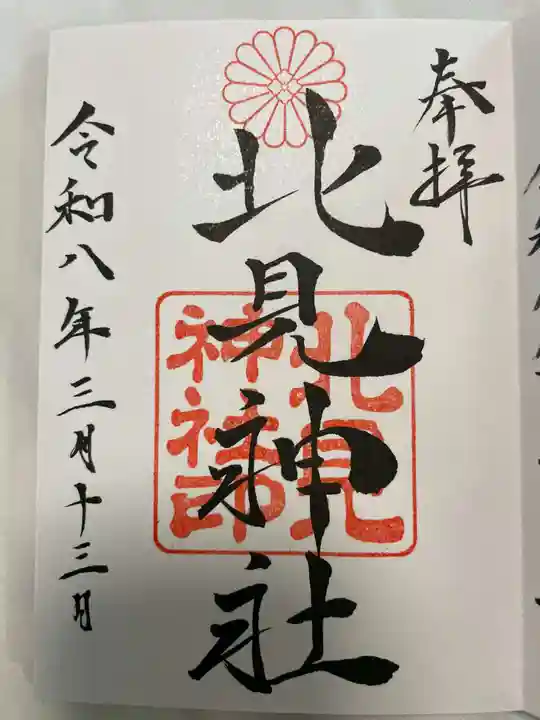 奉拝
北見神社
北見
神社印
令和八年三月十三日